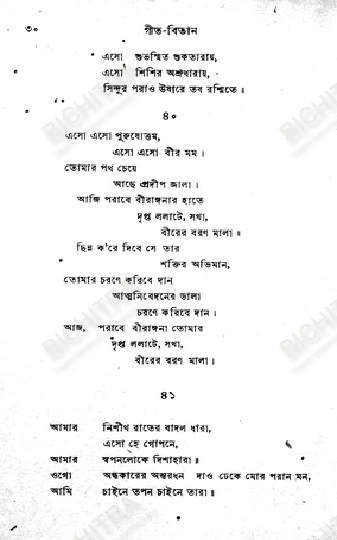 ৩০ গীত-বিতান
এসো শুভস্মিত শুকতারায়,
এসো শিশির অশ্রুধারায়,
সিন্দূর পরাও উষারে তব রশ্মিতে ।
৪০
এসো এসো পুরুষোত্তম,
এসো এসো বীর মম ।
তোমার পথ চেয়ে
আছে প্রদীপ জ্বালা ।
আজি পরাবে বীরাঙ্গনার হাতে
দৃপ্ত ললাটে, সখা,
বীরের বরণ মালা ।
ছিন্ন ক'রে দিবে সে তার
শক্তির অভিমান,
তোমার চরণে করিবে দান
আত্মনিবেদনের ডালা
চরণে করিবে দান ।
আজ, পরাবে বীরাঙ্গনা তোমার
দৃপ্ত ললাটে, সখা,
বীরের বরণ মালা ।
৪১
আমার নিশীথ রাতের বাদল ধারা,
এসো হে গোপনে,
আমার স্বপনলোকে দিশাহারা ।
ওগো অন্ধকারের অন্তরধন দাও ঢেকে মোর পরান মন,
আমি চাইনে তপন চাইনে তারা ।
BICHITRA